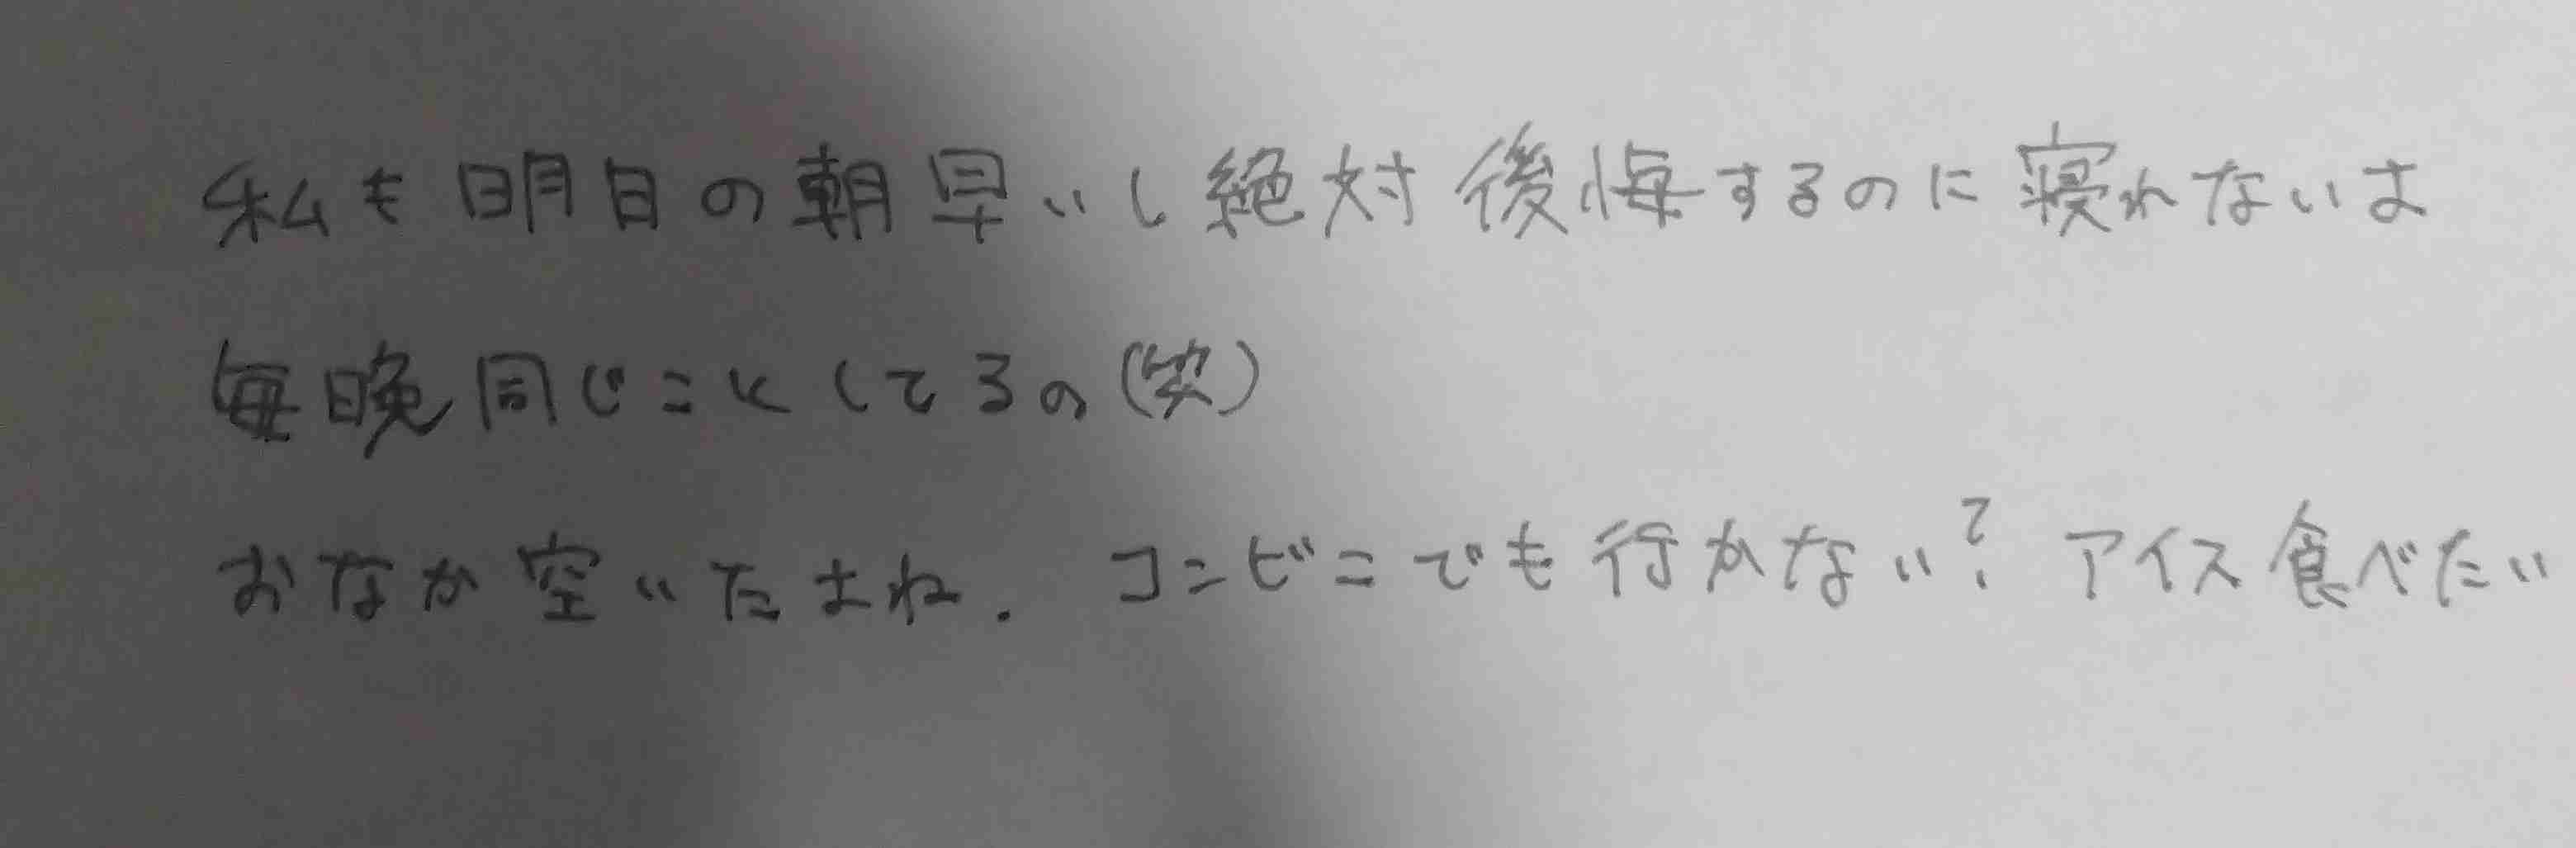 私も明日の朝早いし絶対後悔するのに寝れないよ
毎晩同じことしてるの(笑)
おなか空いたよね. コンビニでも行かない? アイス食べたい